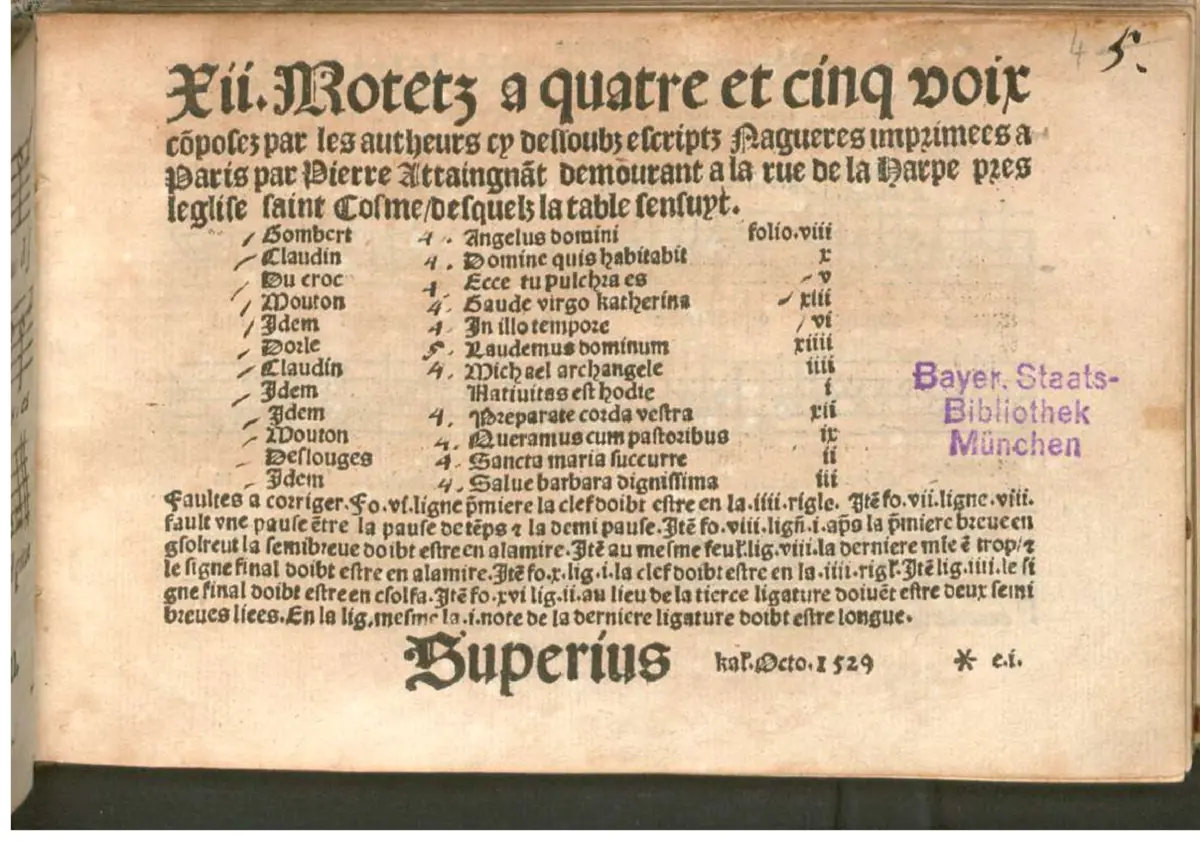 4 5.
Xii. Motetz a quatre et cinq voix
cõposez par les autheurs cy dessoubz escriptz Nagueres imprimees a
Paris par Pierre Attaingnãt demourant a la rue de la Harpe pres
leglise saint Cosme/desquelz la table sensuyt.
Gombert 4. Angelus domini folio.viii
Claudin 4. Domine quis habitabit x
Du croc 4. Ecce tu pulchra es v
Mouton 4. Gaude virgo katherina xiii
Idem 4. In illo tempore vi
Dorle 5. Laudemus dominum xiiii
Claudin 4. Michael archangele iiii
Idem Natiuitas est hodie i
Idem 4. Preparate corda vestra xii
Mouton 4. Queramus cum pastoribus ix
Deslouges 4. Sancta maria succurre ii
Idem 4. Salue barbara dignissima iii
Faultes a corriger. Fo.vi.ligne p̃miere la clef doibt estre en la.iiii.rigle. Itẽ fo.vii.ligne.viii.
fault vne pause ẽtre la pause de tẽps ⁊ la demi pause. Itẽ fo.viii.ligñ.i.ap̃s la p̃miere breue en
gsolreut la semibreue doibt estre en alamire. Itẽ au mesme feul̃.lig.viii.la derniere mĩe ẽ trop/⁊
le signe final doibt estre en alamire. Itẽ fo.x.lig.i.la clef doibt estre en la.iiii.rigl̃. Itẽ lig.iiii.le si
gne final doibt estre en csolfa. Itẽ fo.xvi lig.ii.au lieu de la tierce ligature doiuẽt estre deux semi
breues liees. En la lig.mesme la.i.note de la derniere ligature doibt estre longue.
Superius kal̃.Octo.1529 * e.i.
Bayer. Staats-
Bibliothek
München